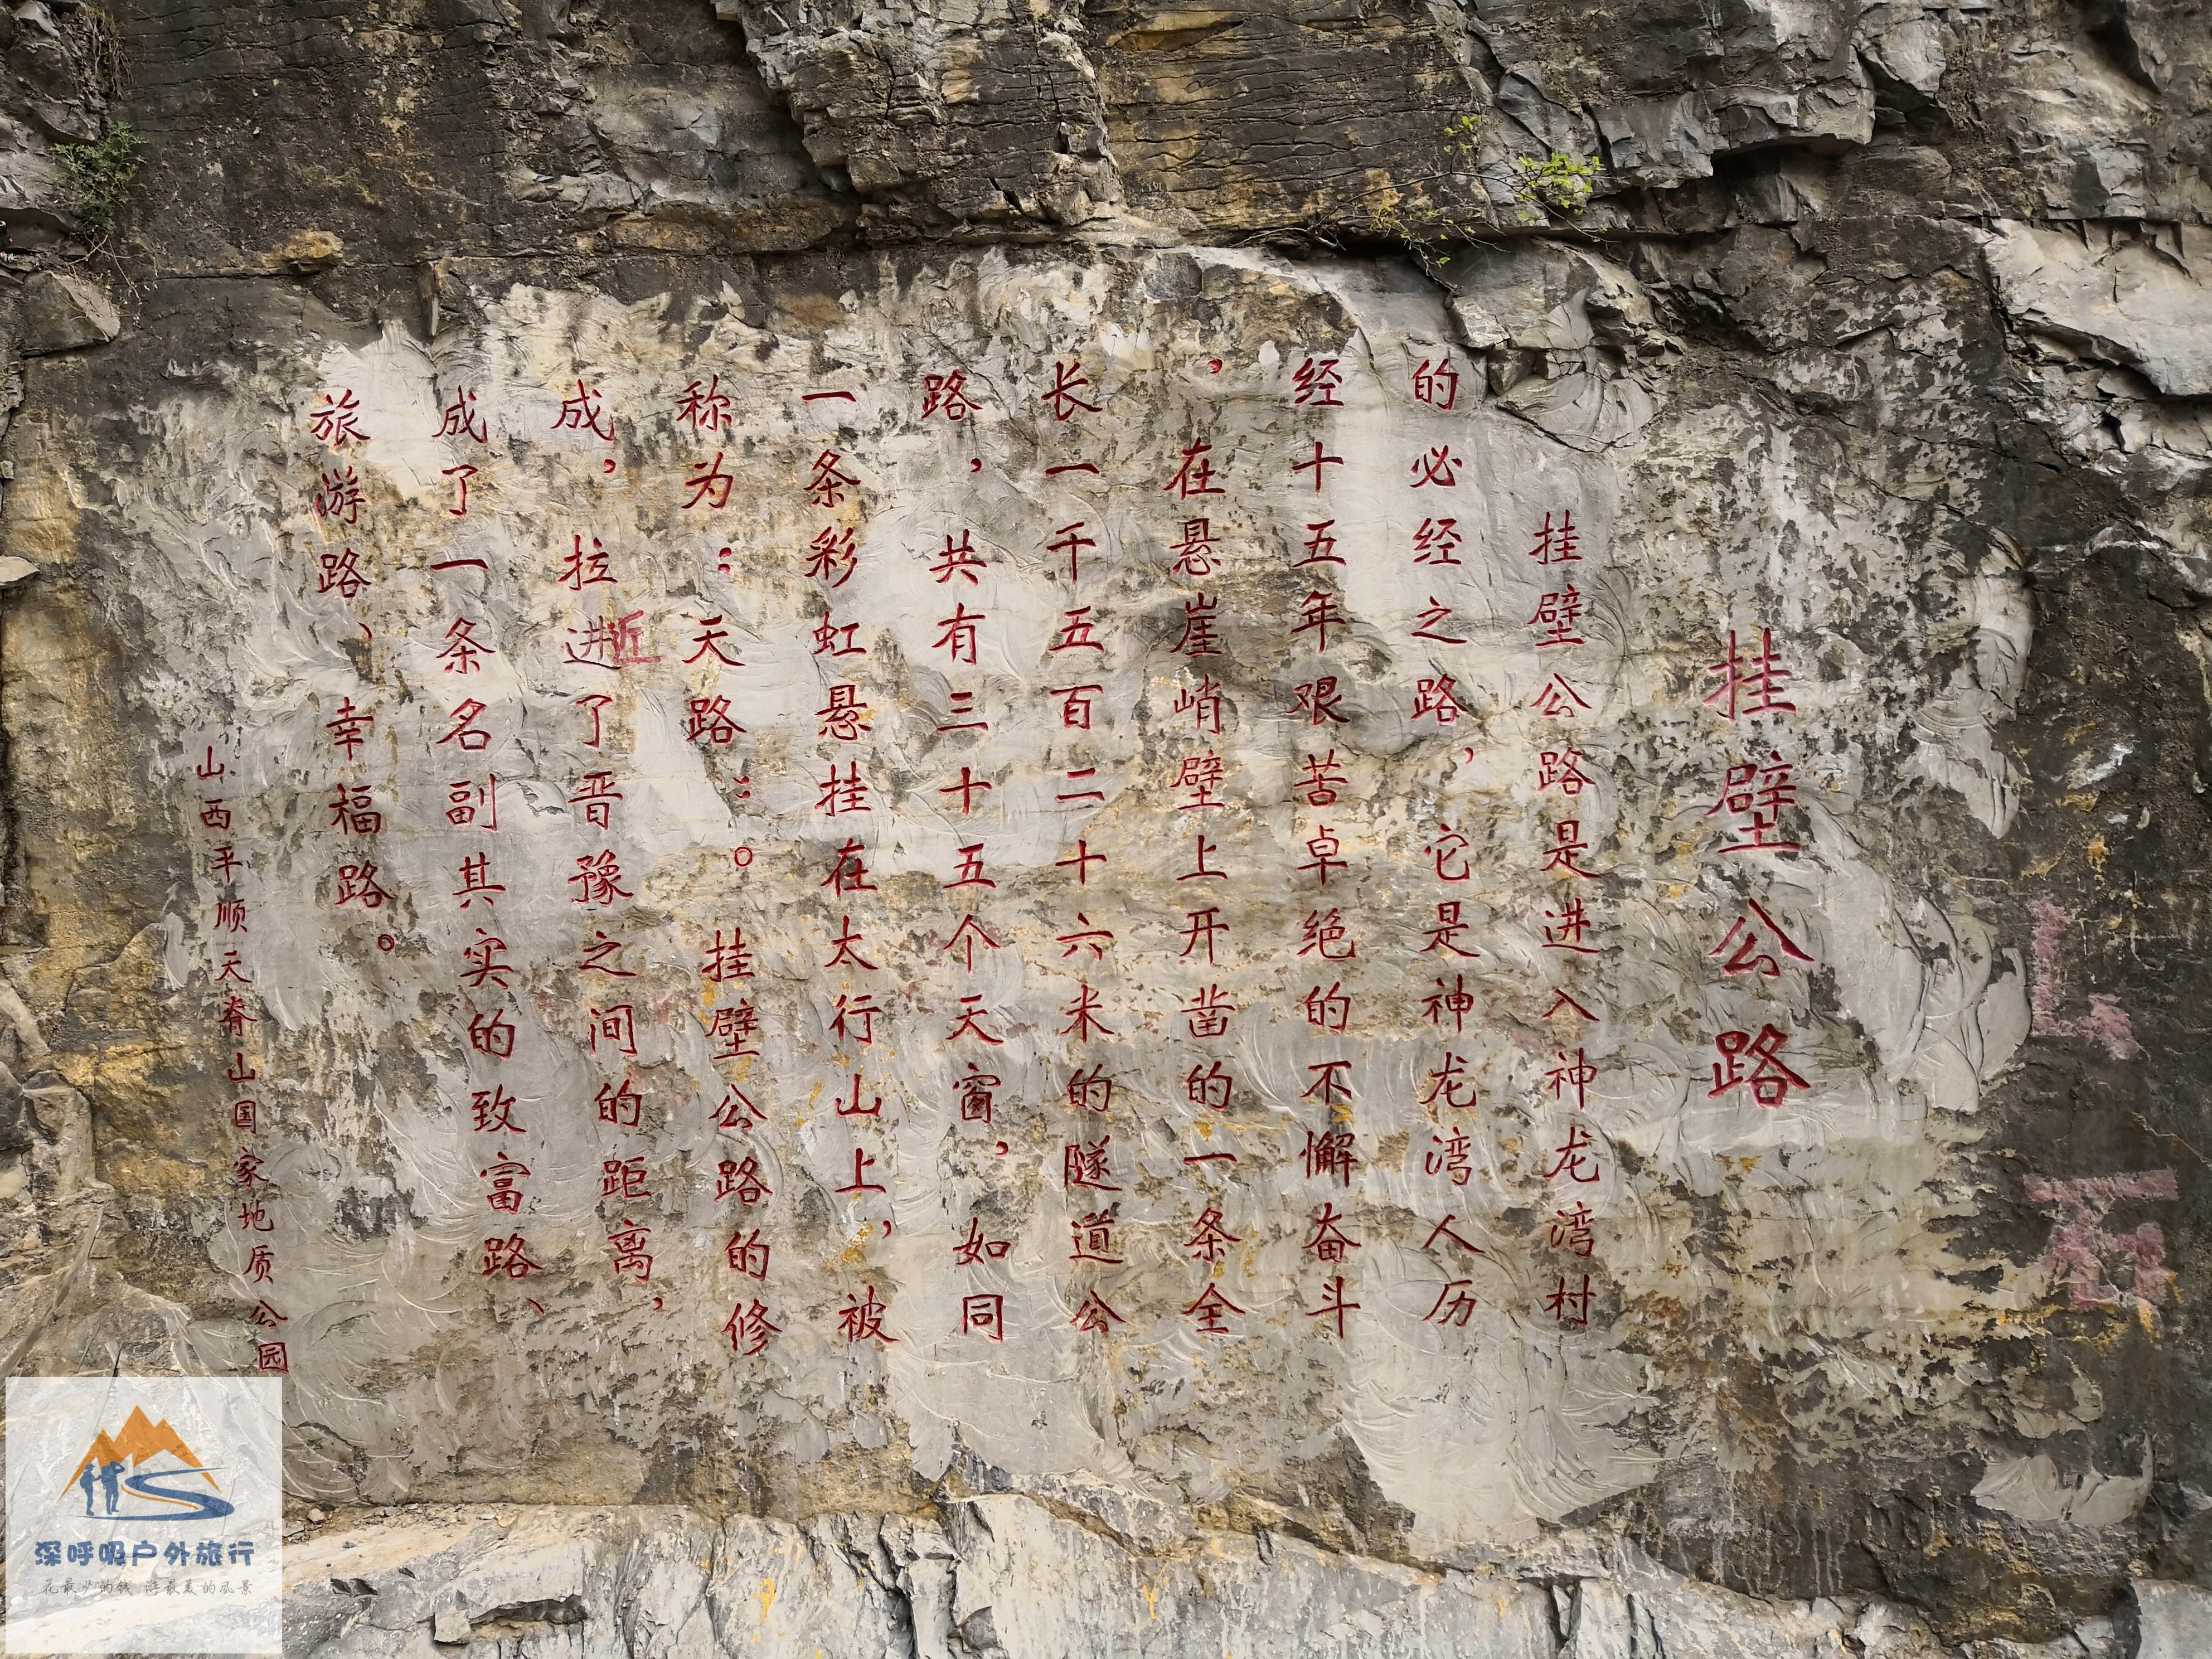 挂壁公路
挂壁公路是进入神龙湾村
的必经之路，它是神龙湾人历
经十五年艰苦卓绝的不懈奋斗
，在悬崖峭壁上开凿的一条全
长一千五百二十六米的隧道公
路，共有三十五个天窗，如同
一条彩虹悬挂在太行山上，被
称为：天路：。挂壁公路的修
成，拉进了晋豫之间的距离，
近
成了一条名副其实的致富路、
旅游路、幸福路。
山西平顺天脊山国家地质公园
深呼吸户外旅行
花最少的钱 游最美的风景